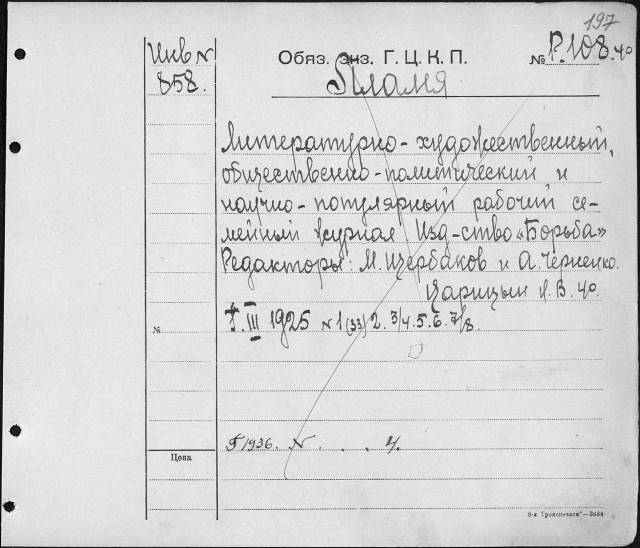 197
Инв №
Обяз. экз. Г. Ц. К. П.
№ Р.108.4°
858.
Пламя
Литературно-художественный,
общественно-политический и
научно-популярный рабочий се-
мейный журнал Изд-ство «Борьба»
Редакторы: М. Щербаков и А. Черненко.
Царицын н. В. 4°.
Г. III 1925 № 1 (33) 2. 3/4. 5. 6. 7/8.
№
Г 1936. № . . . 4.
Цена
8-я Транспечати"—3984